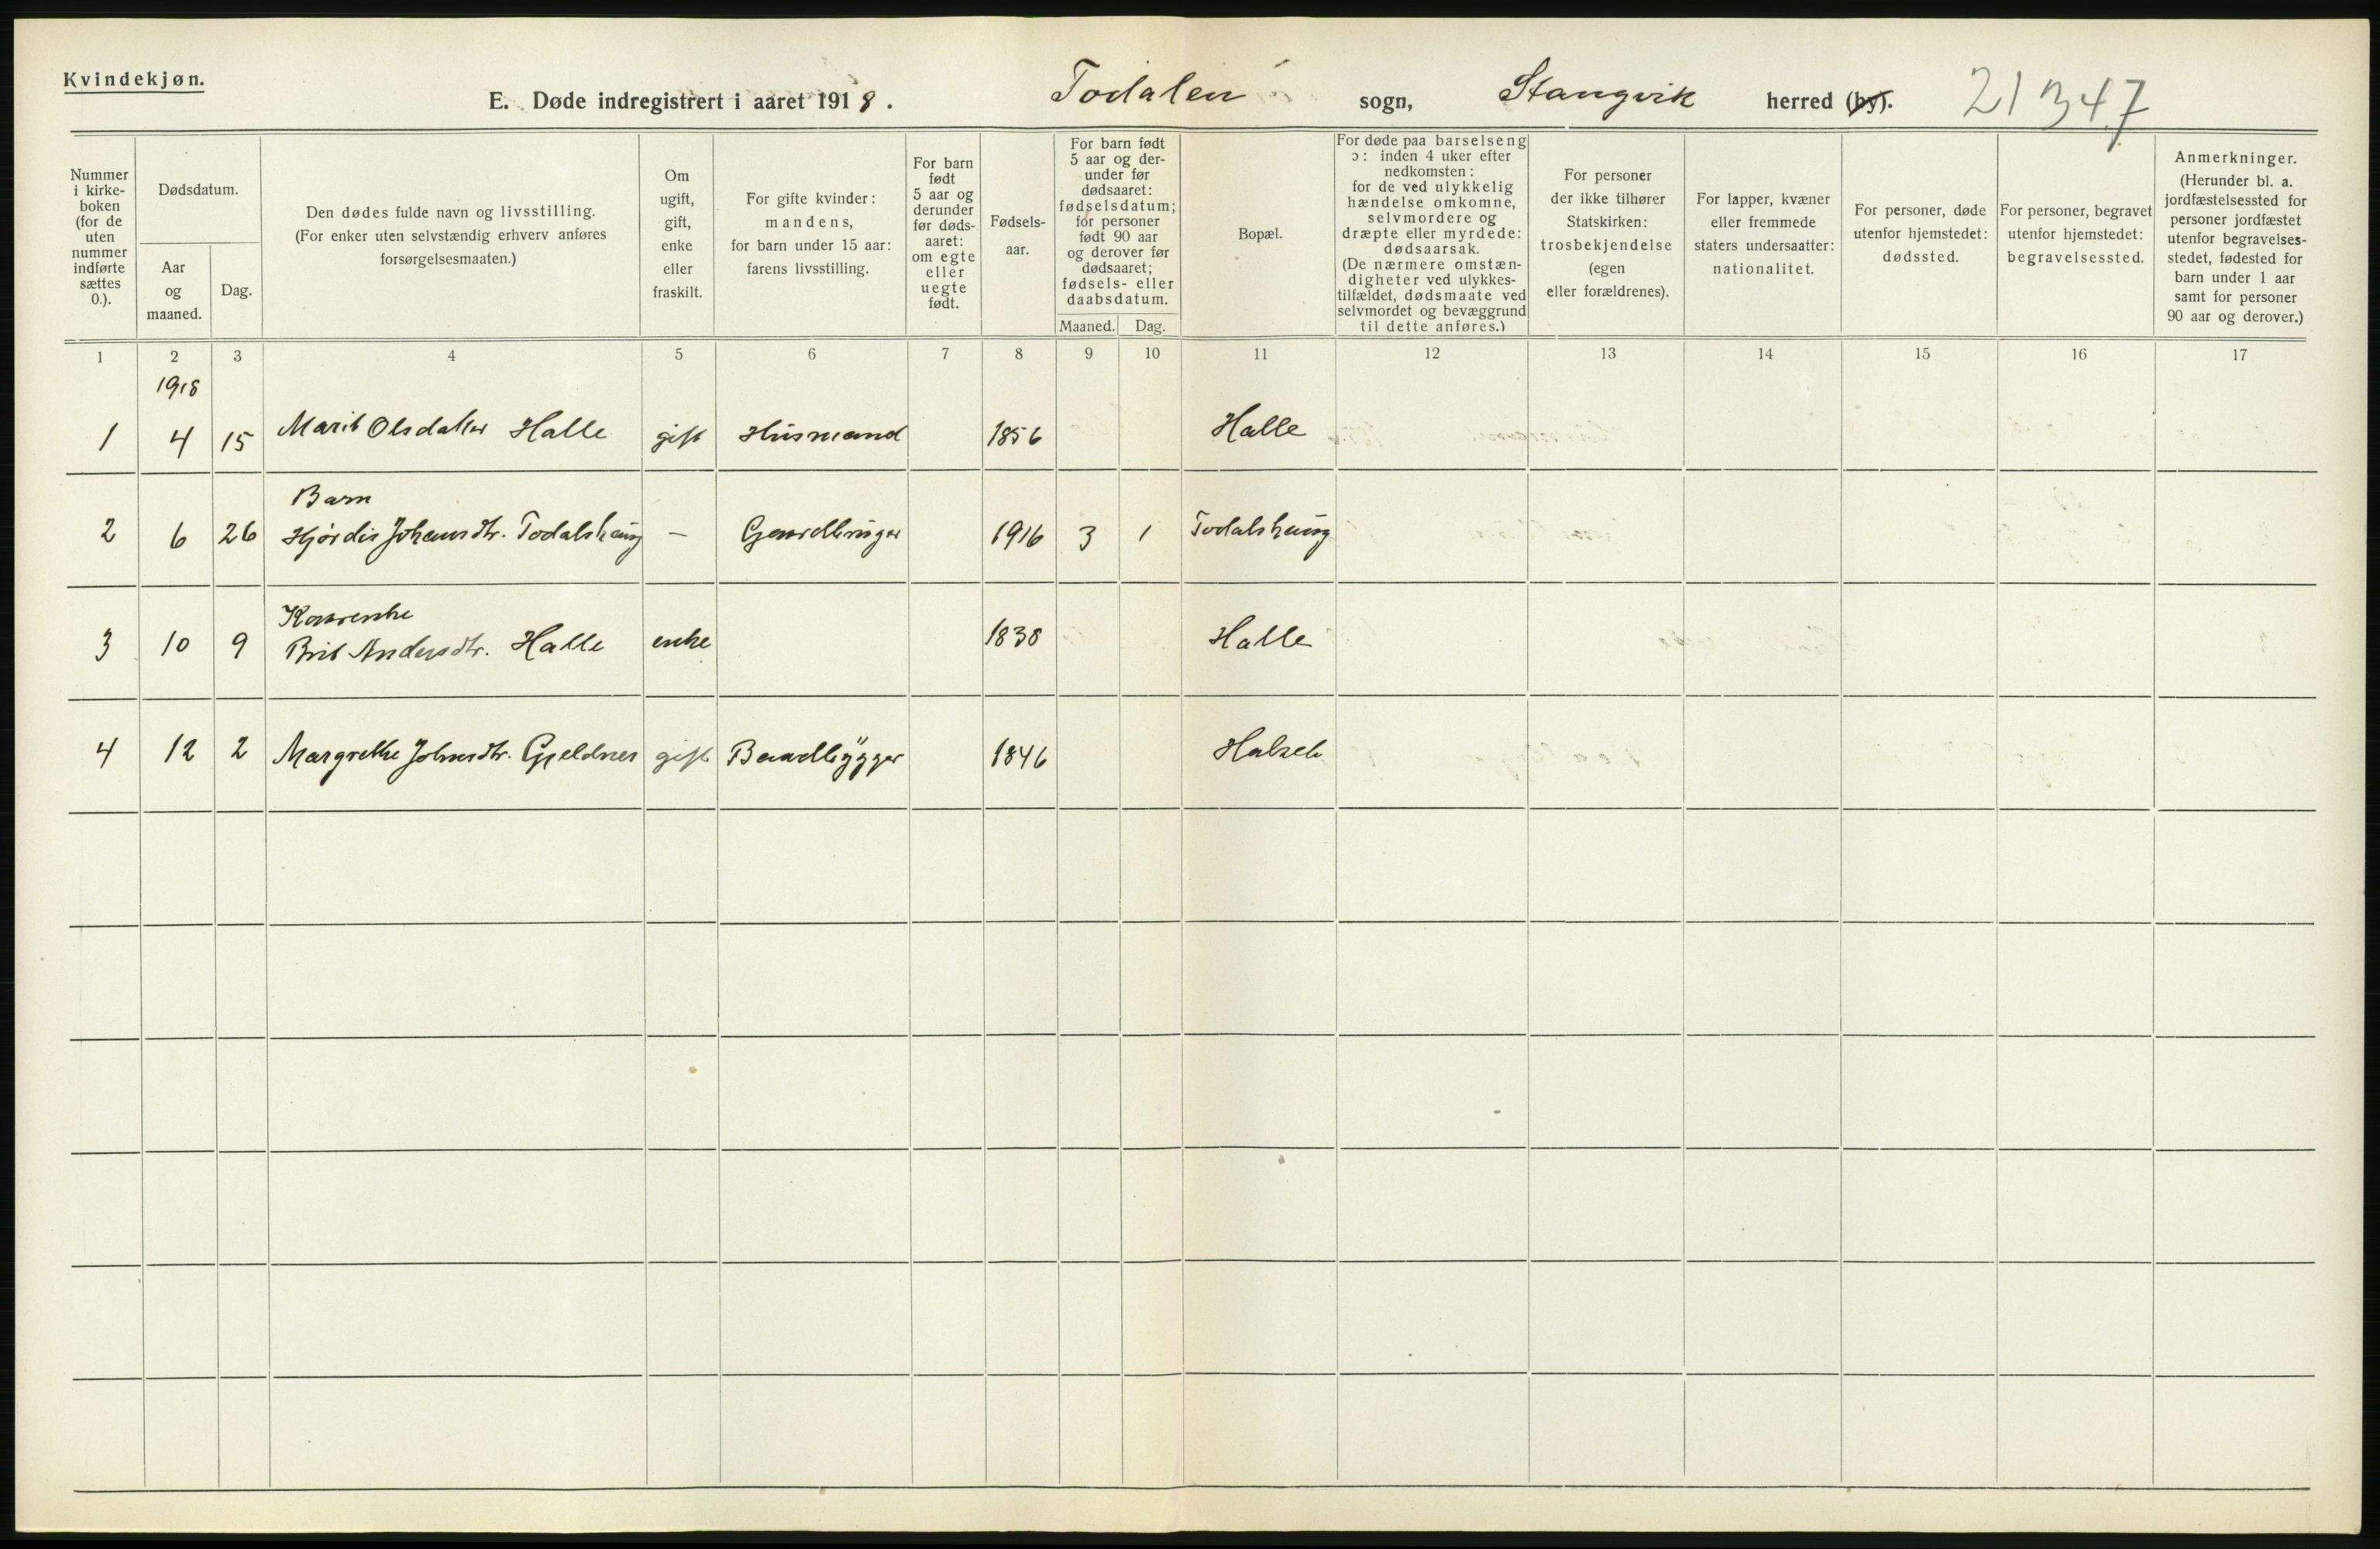 Kvindekjøn.
E. Døde indregistrert i aaret 1918. Todalen sogn, Stangvik herred (by). 21347
Nummer i kirke- boken (for de uten nummer indførte sættes 0.).
Dødsdatum.
Aar og maaned.
Dag.
Den dødes fulde navn og livsstilling.
(For enker uten selvstændig erhverv anføres
forsørgelsesmaaten.)
Om ugift, gift, enke eller fraskilt.
For gifte kvinder: mandens, for barn under 15 aar: farens livsstilling.
For barn født 5 aar og derunder før døds- aaret: om egte eller uegte født.
Fødsels- aar.
For barn født 5 aar og der- under før dødsaaret: fødselsdatum; for personer født 90 aar og derover før dødsaaret; fødsels- eller daabsdatum.
Maaned. Dag.
Bopæl.
For døde paa barselseng ɔ: inden 4 uker efter nedkomsten: for de ved ulykkelig hændelse omkomne, selvmordere og dræpte eller myrdede: dødsaarsak. (De nærmere omstæn- digheter ved ulykkes- tilfældet, dødsmaate ved selvmordet og bevæggrund til dette anføres.)
For personer der ikke tilhører Statskirken: trosbekjendelse (egen eller forældrenes).
For lapper, kvæner eller fremmede staters undersaatter: nationalitet.
For personer, døde utenfor hjemstedet: dødssted.
For personer, begravet utenfor hjemstedet: begravelsessted.
Anmerkninger. (Herunder bl. a. jordfæstelsessted for personer jordfæstet utenfor begravelses- stedet, fødested for barn under 1 aar samt for personer 90 aar og derover.)
1 2 3 4 5 6 7 8 9 10 11 12 13 14 15 16 17
1918
1 4 15 Marit Olsdatter Halle gift Husmand 1856 Halle
Barn
2 6 26 Hjørdis Johansdtr. Todalshaug — Gaardbruger 1916 3 1 Todalshaug
3 10 9 Brit Andersdtr. Halle enke 1838 Halle
4 12 2 Margrethe Johnsdtr. Gjeldnes gift Baadbygger 1846